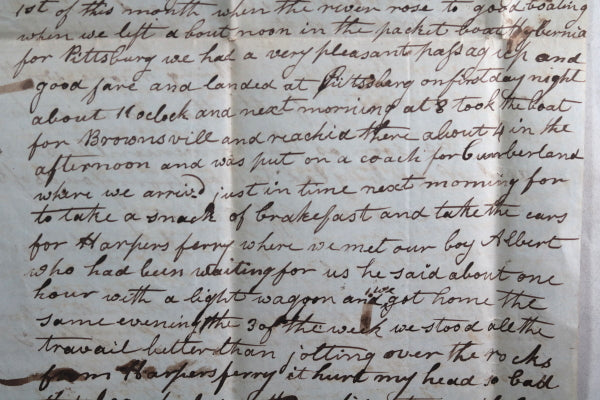 1st of this month when the river rose to good boating
when we left about noon in the packet boat Hybernia
for Pittsburg we had a very pleasant passag up and
good fare and landed at Pittsburg on first day night
about 11 oclock and next morning at 8 took the boat
for Brownsvill and reachid there about 4 in the
afternoon and was put on a coach for Cumberland
where we arrived just in time next morning for
to take a snack of brakefast and take the cars
for Harpers ferry where we met our boy Albert
who had been waiting for us he said about one
hour with a light wagoon and we got home the
same evening the 3 of the week we stood all the
travail better than jolting over the rocks
from Harpers ferry it hurt my head so bad